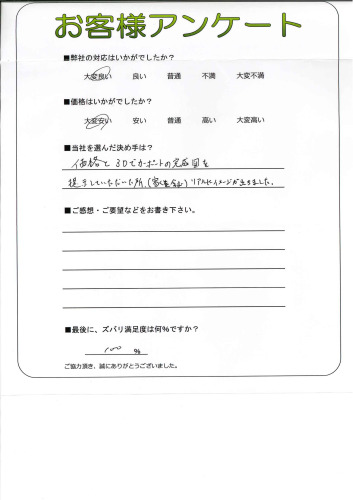 お客様アンケート
■弊社の対応はいかがでしたか?
大変良い 良い 普通 不満 大変不満
■価格はいかがでしたか?
大変安い 安い 普通 高い 大変高い
■当社を選んだ決め手は?
価格と3Dでカーポートの完成図を
提示していただいた所。(家も含む)リアルにイメージが出きました。
■ご感想・ご要望などをお書き下さい。
■最後に、ズバリ満足度は何%ですか?
100 %
ご協力頂き、誠にありがとうございました。